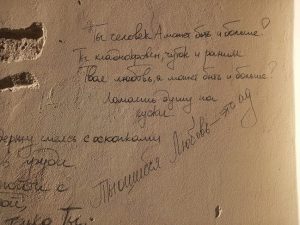 Ты человек. А может быть и больше?
Ты хладнокровен, чуток и раним
Твоя любовь, а может быть и больше?
Ломаешь душу на
куски.
смесь с осколками
в груди.
с
Ты.
Ты ошибся Любовь — это ад